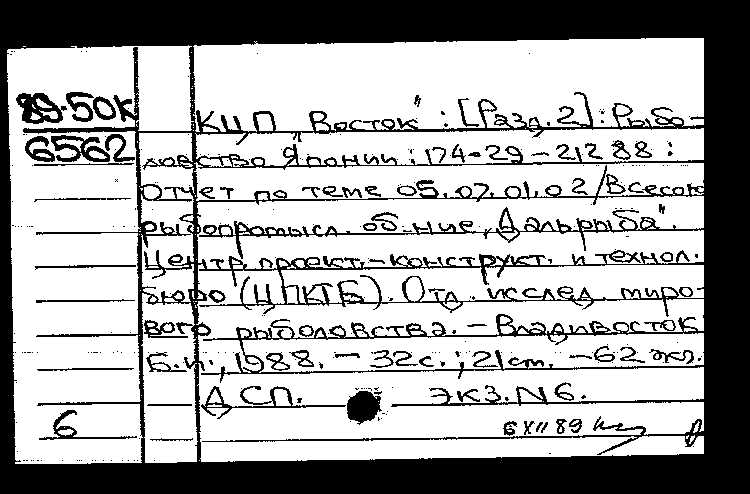 89-50К
6562
КЦП "Восток" : [Разд. 2] : Рыбо-
ловство Японии : 174-29-212 88 :
Отчет по теме 05.07.01.02 / Всесоюз
рыбопромысл. об-ние "Дальрыба".
Центр. проект.-конструкт. и технол.
бюро (ЦПКТБ). Отд. исслед. миро-
вого рыболовства. - Владивосток
Б.и., 1988. - 32с.; 21 ст. - 62 экз.
ДСП. экз. N6.
6
6 XII 89